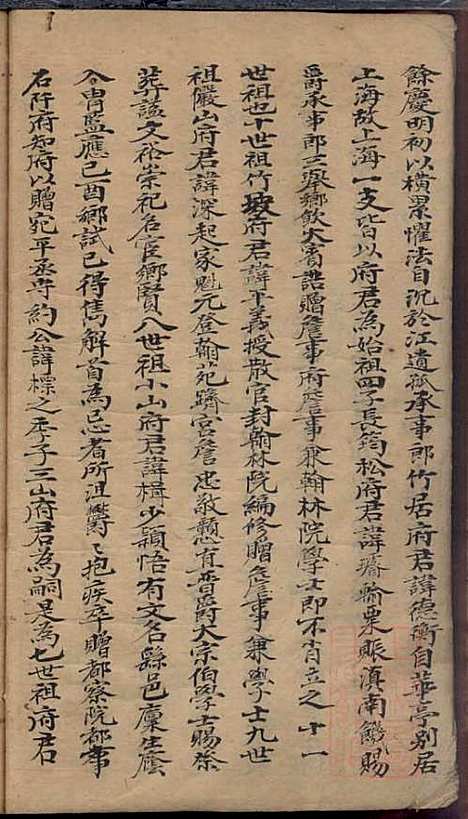 餘慶明初以橫累懼法自沉於江遺孤承事郎竹居府君諱德衡自華亭別居
上海故上海一支皆以府君為始祖四子長筠松府君諱璿輸粟賑滇南饑賜
爵承事郎三舉鄉飲大賓誥贈詹事府詹事兼翰林院學士即不肖立之十一
世祖也十世祖竹坡府君諱平義授散官封翰林院編修贈詹事兼學士九世
祖儼山府君諱深起家魁元登翰苑躋宮詹忠敬懋直晉爵大宗伯學士賜祭
葬謚文裕崇祀名宦鄉賢八世祖小山府君諱楫少穎悟有文名縣邑廩生廕
入胄監應己酉鄉試已得雋解首為忌者所沮鬱々抱疾卒贈都察院都事
石阡府知府以贈宛平丞守約公諱標之季子三山府君為嗣是為七世祖府君